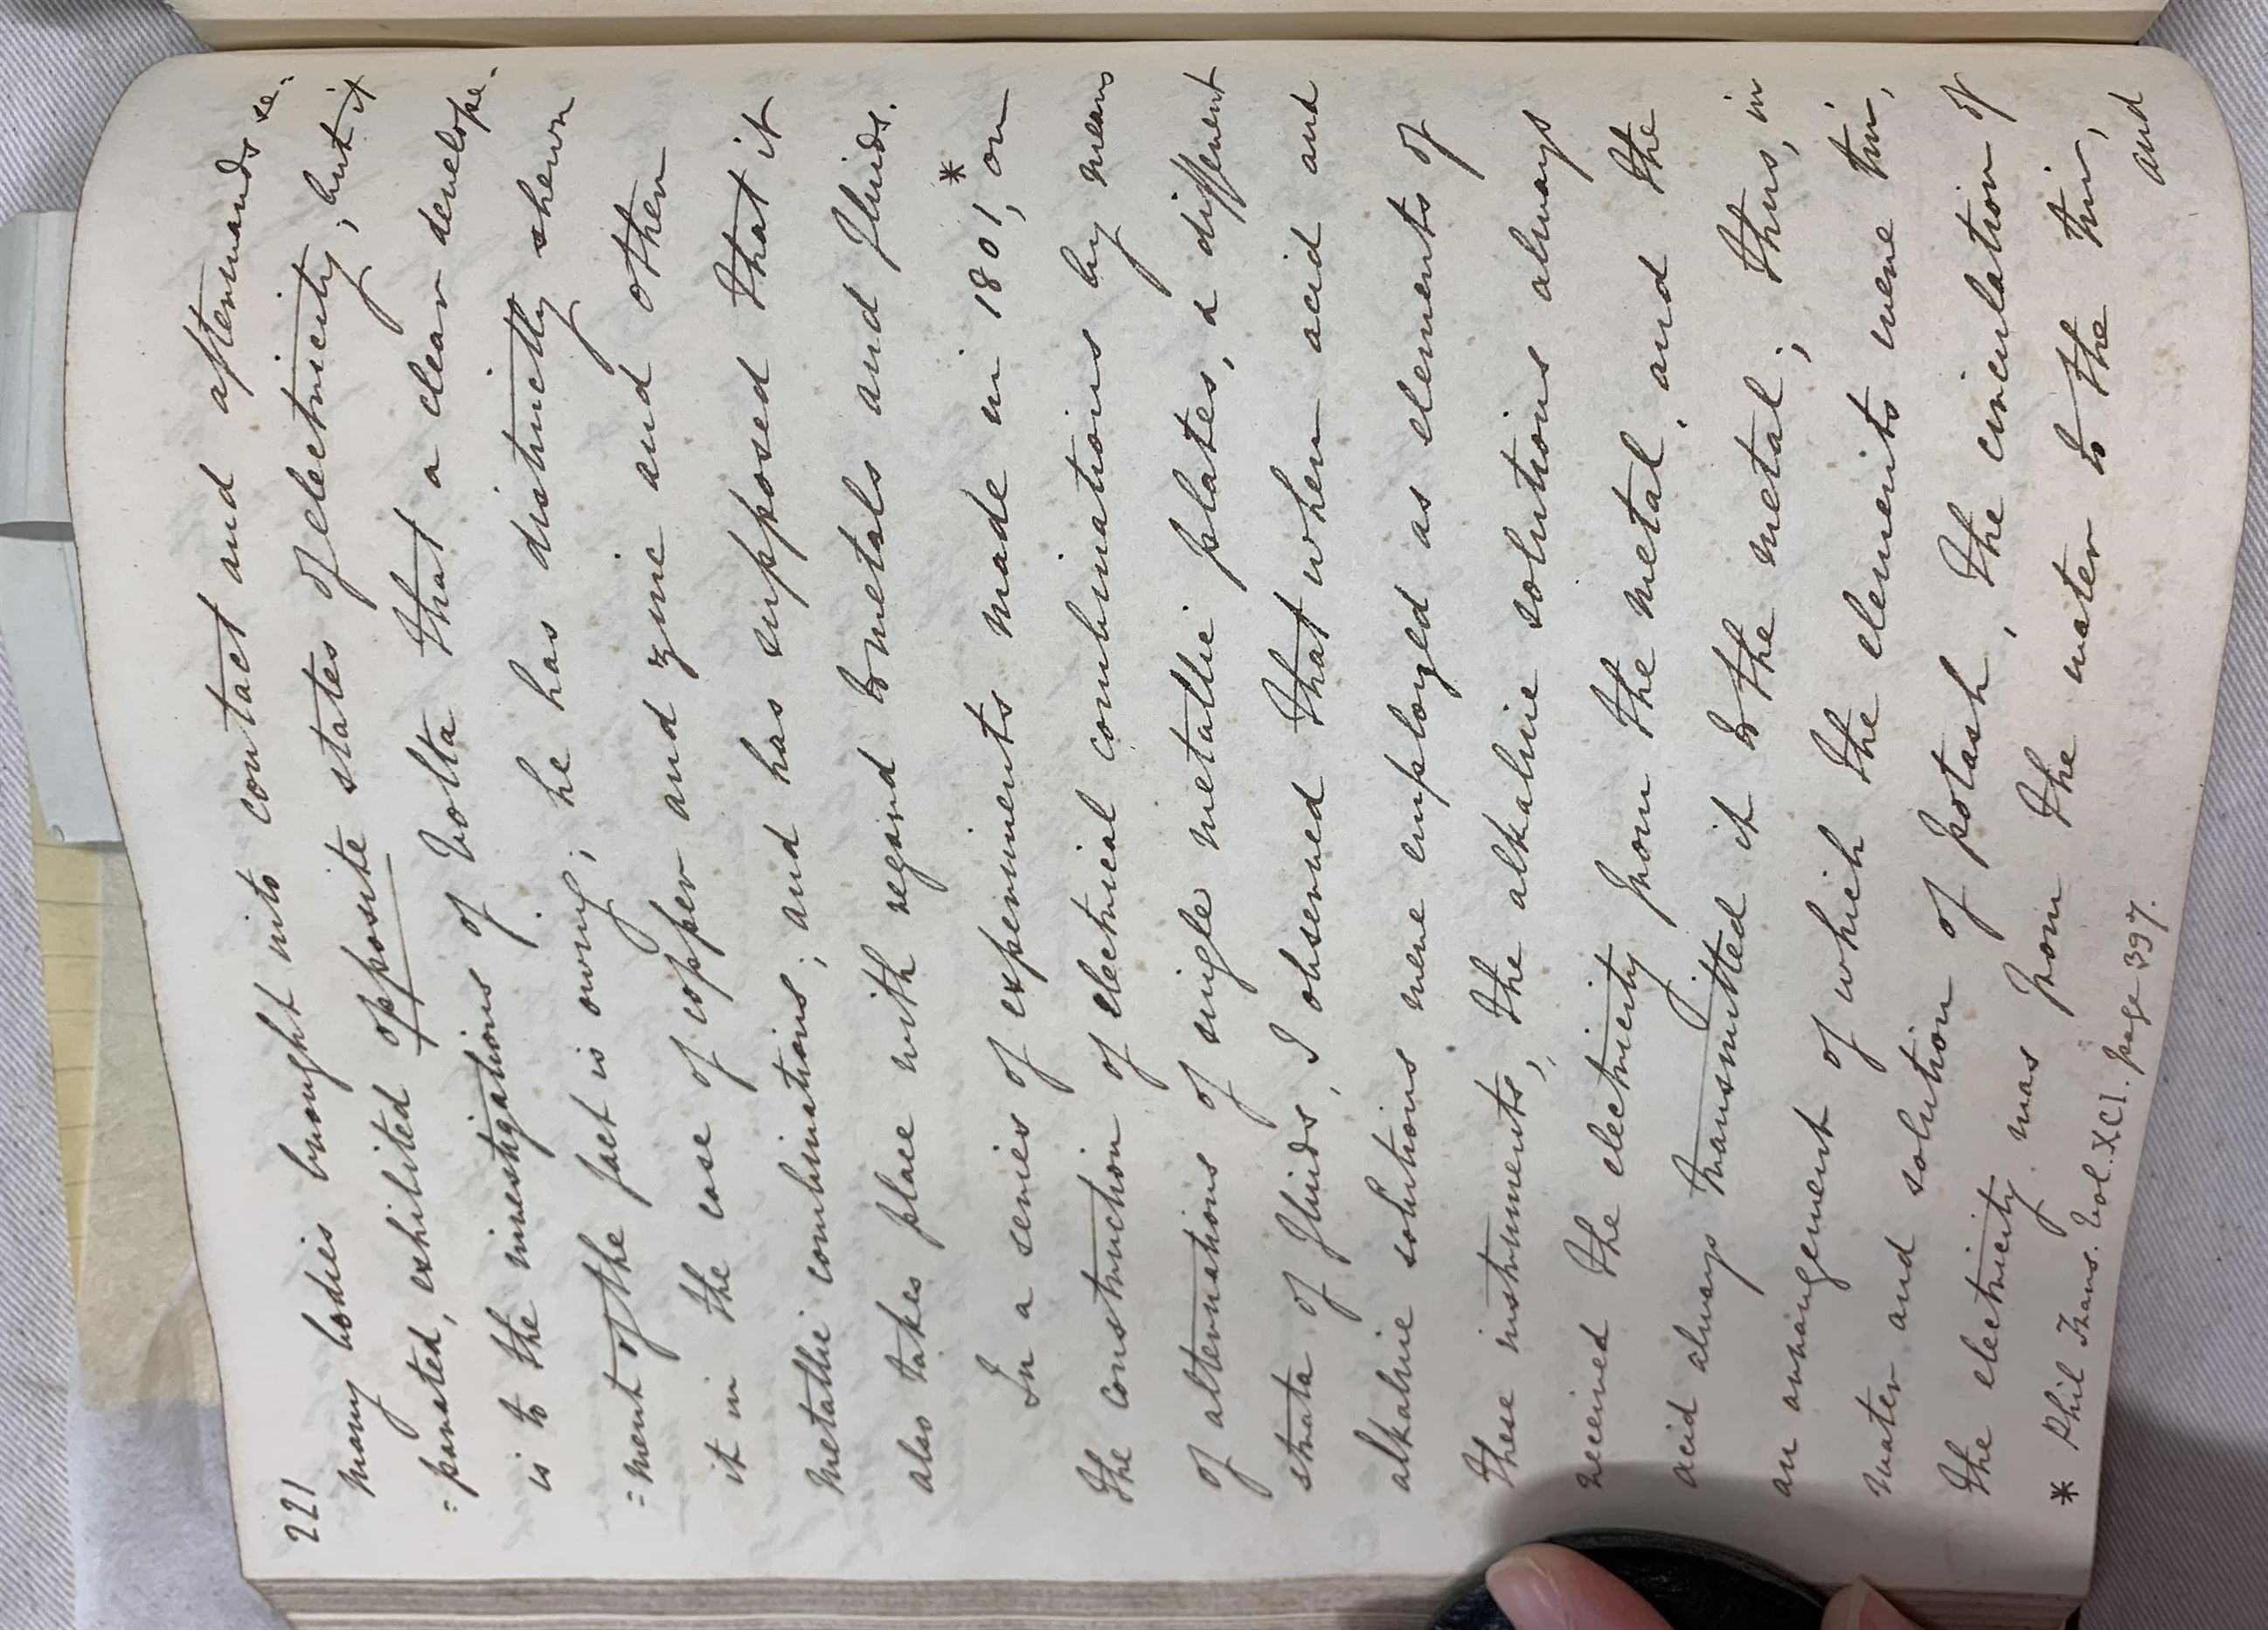 221
many bodies brought into contact and afterwards se-
=parated, exhibited opposite states of electricity; but it
is to the investigations of Volta that a clear develope-
=ment of the fact is owing; he has distinctly shewn
it in the case of copper and zinc and other
metallic combinations; and has supposed that it
also takes place with regard to metals and fluids.
In a series of experiments made in 1801,* on
the construction of electrical combinations by means
of alternations of single metallic plates, & different
strata of fluids, I observed that when acid and
alkaline solutions were employed as elements of
these instruments, the alkaline solutions always
received the electricity from the metal, and the
acid always transmitted it to the metal; thus, in
an arrangement of which the elements were tin,
water and solution of potash, the circulation of
the electricity was from the water to the tin,
and
* Phil Trans. Vol. XCI. page 397.